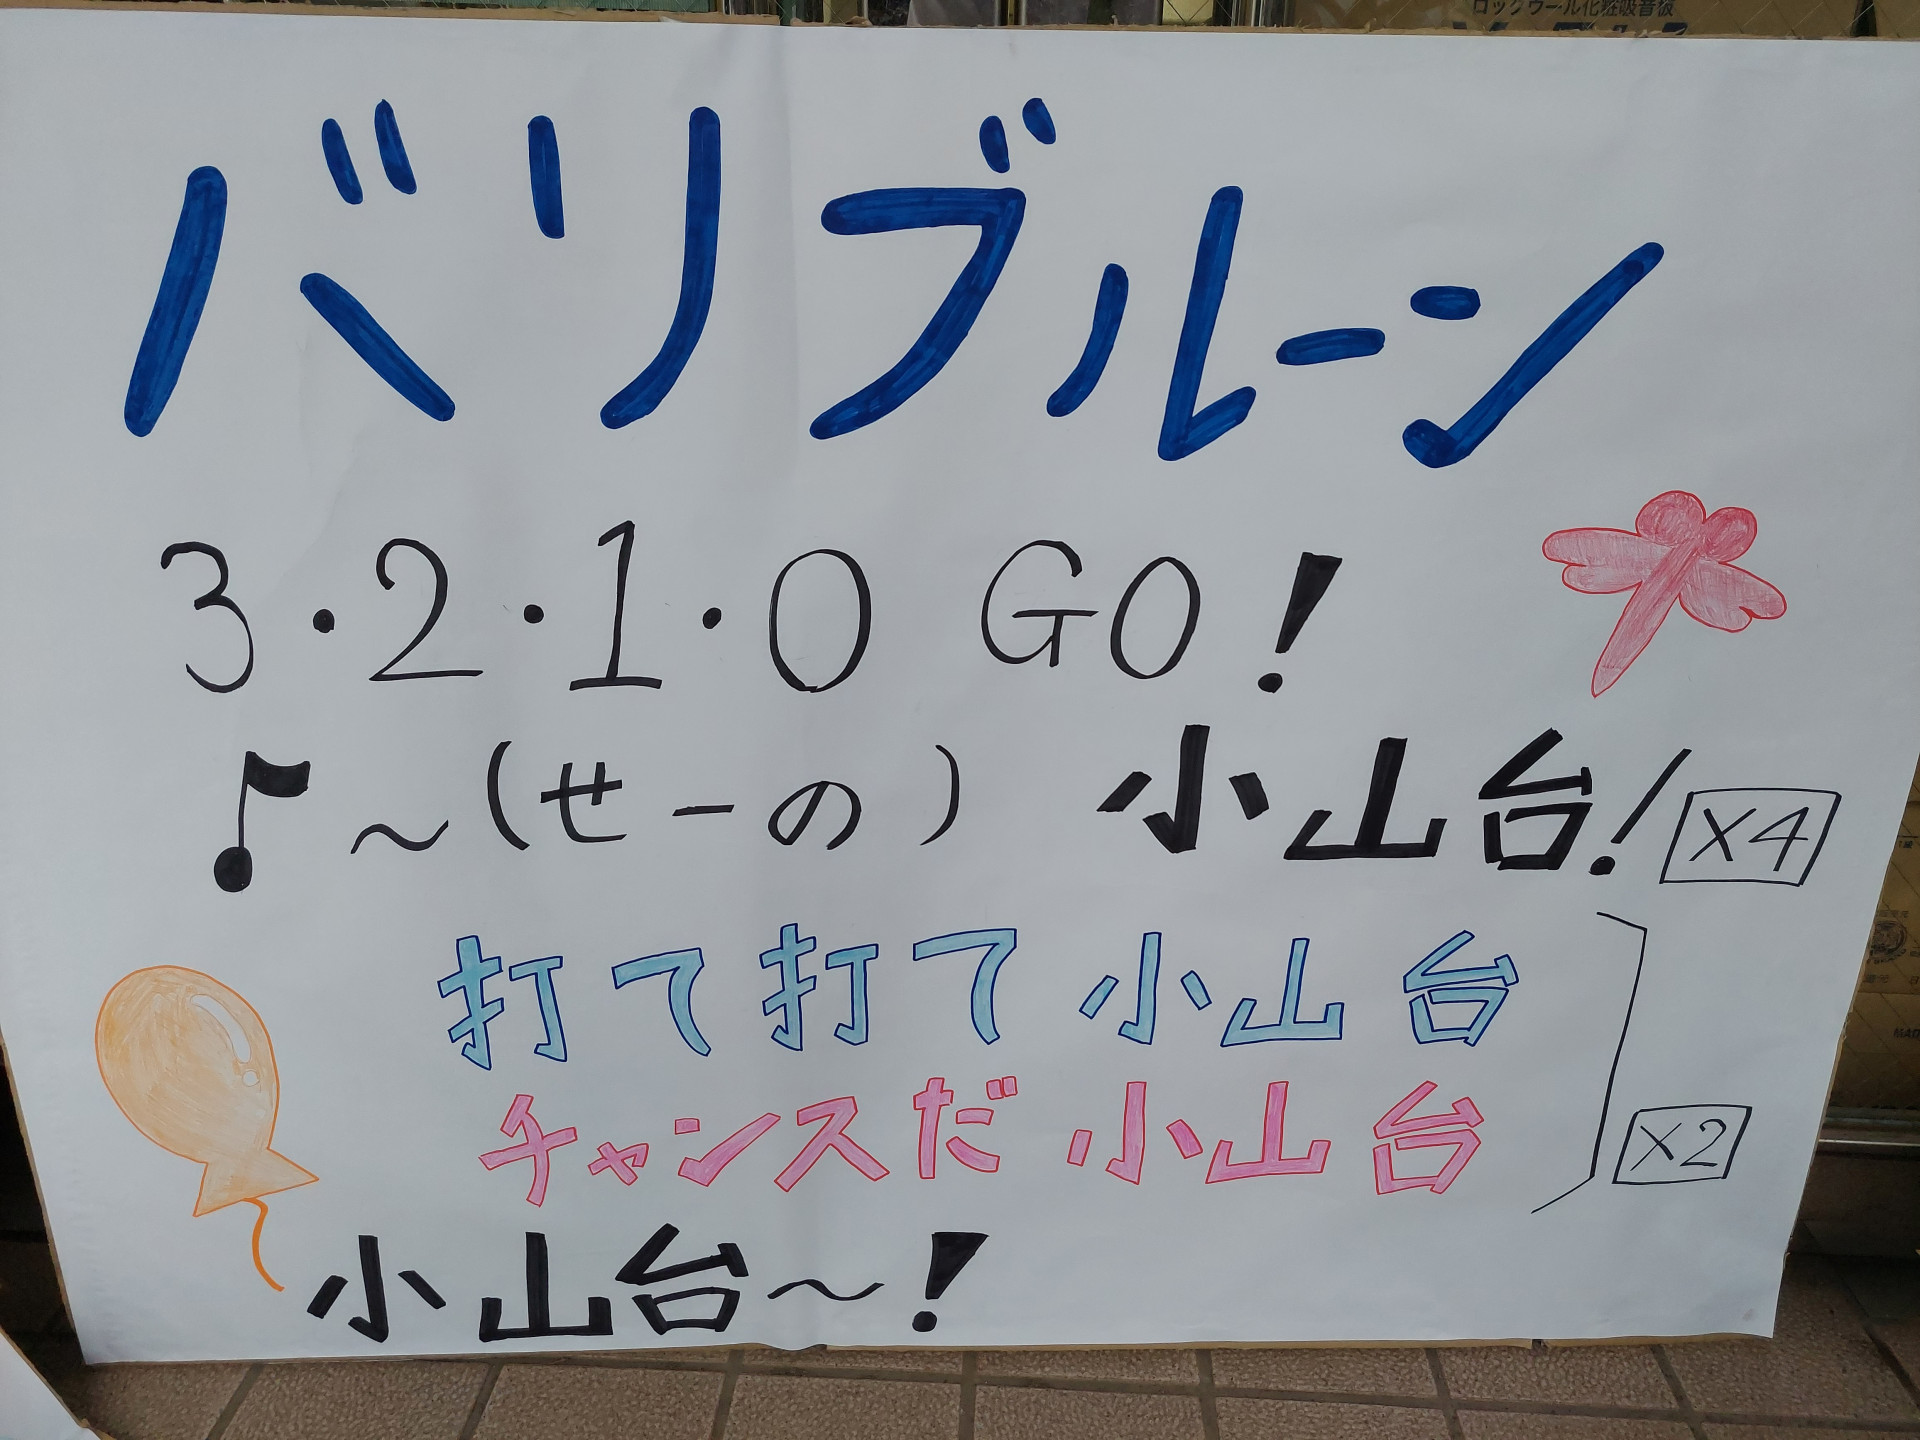 ロックウール化粧吸音板
バリブルーン
3・2・1・0 GO!
♪〜(せーの) 小山台! ×4
打て打て小山台
チャンスだ小山台
×2
小山台〜!